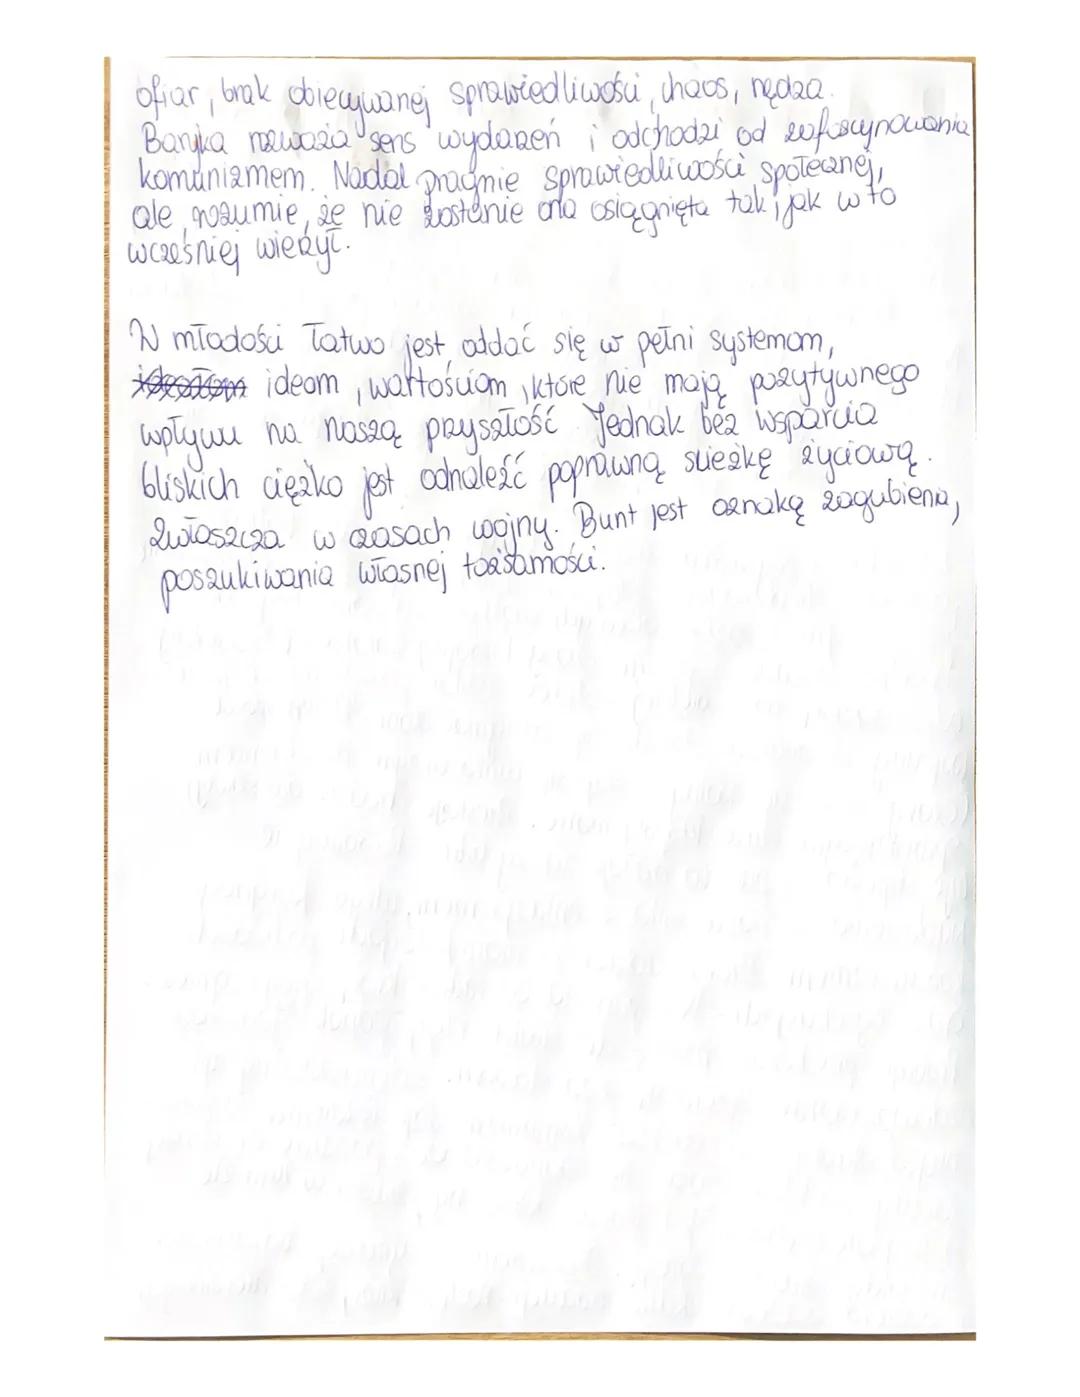 ofiar, brak obiecywanej sprawiedliwości, chaos, nędza.
Baryka rozważa sens wydarzeń i odchodzi od zafascynowania
komunizmem. Nadal pragnie sprawiedliwości społecznej,
ale rozumie, że nie zostanie ona osiągnięta tak, jak w to
wcześniej wierzył.
W młodości łatwo jest oddać się w pełni systemom,
ideom, wartościom, które nie mają pozytywnego
wpływu na naszą przyszłość. Jednak bez wsparcia
bliskich ciężko jest odnaleźć poprawną ścieżkę życiową.
Zwłaszcza w czasach wojny. Bunt jest oznaką zagubienia,
poszukiwania własnej tożsamości.